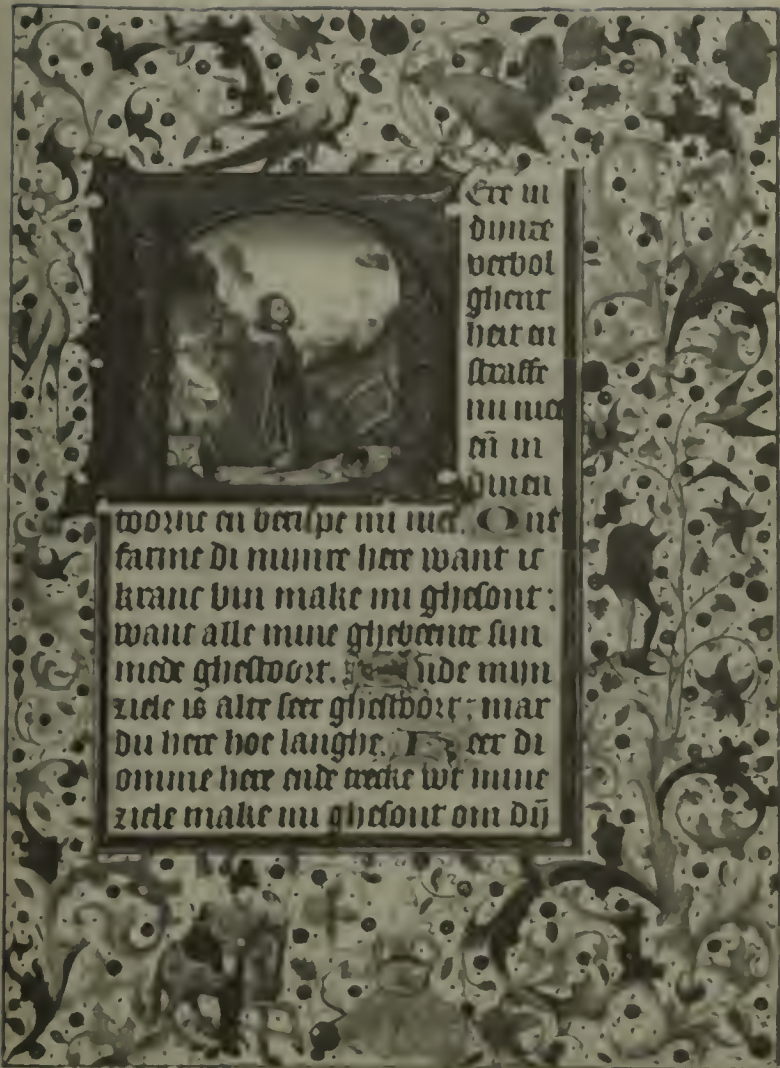 Ere in
dinre
verbol
ghent
heit en
straffe
mi niet
eñ in
dinen
toorne en berispe mi niet. Ont
farme di minre here want ic
kranc bin make mi ghesont:
want alle mine ghebeente sijn
mede ghestoort. Ende mijn
ziele is alte seer ghestoort: mar
du here hoe langhe. Keer di
omme here ende trecke wt mine
ziele make mi ghesont om dijn